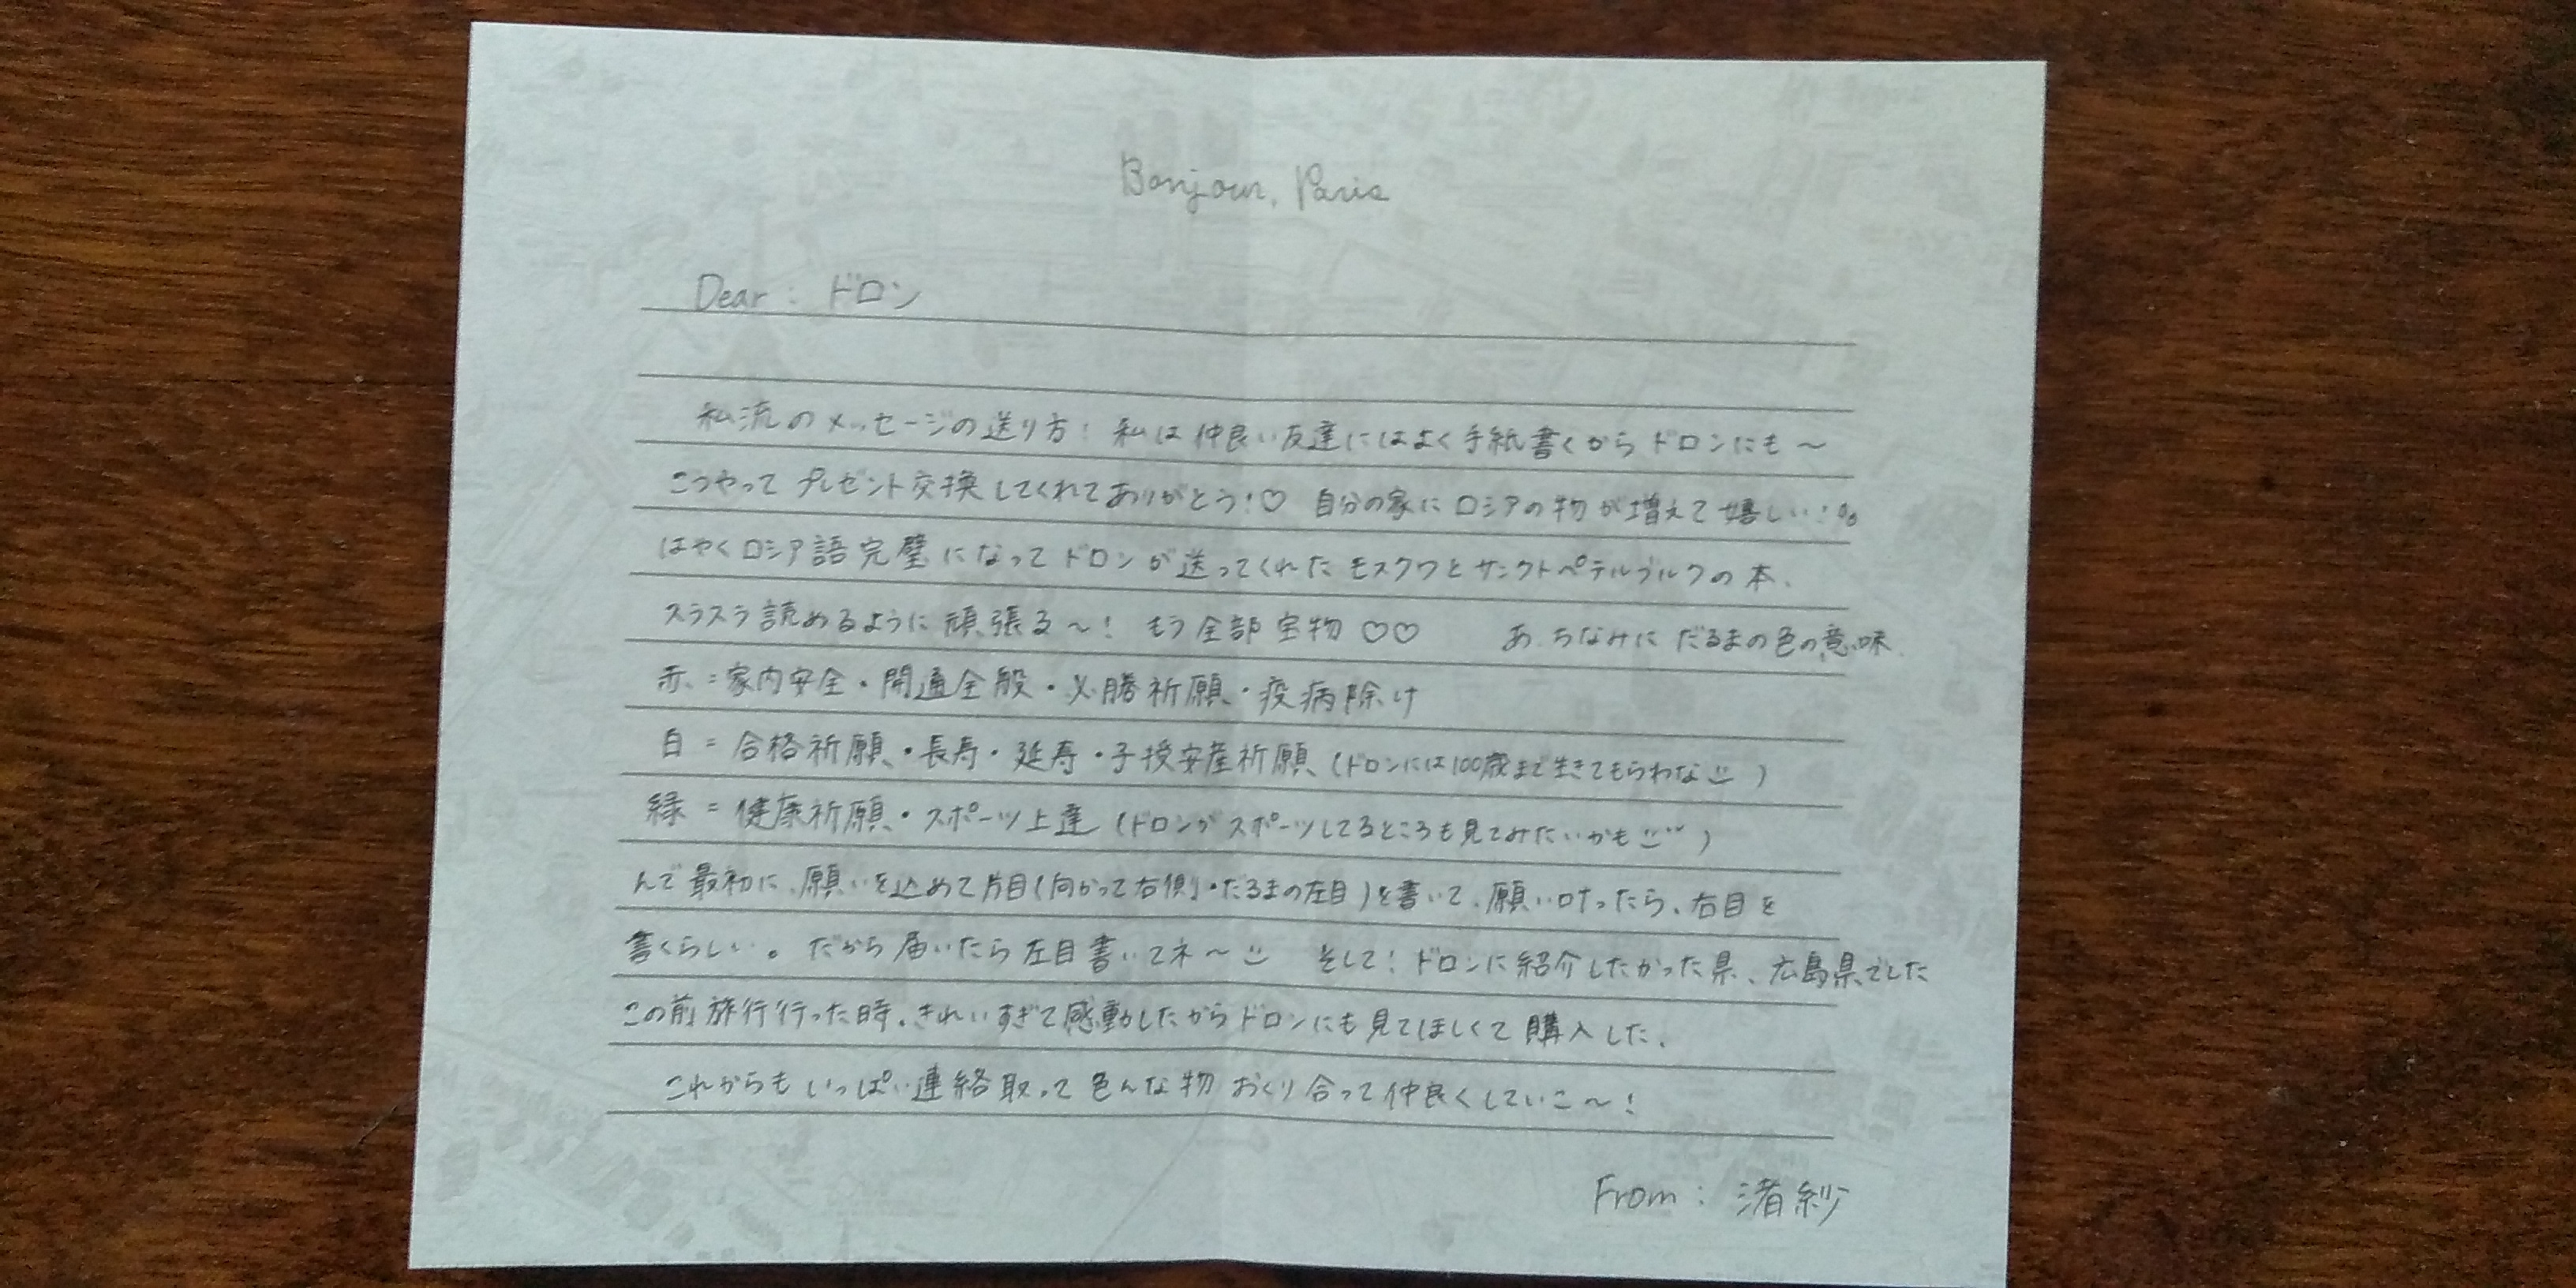 Bonjour, Paris
Dear : ドロン
私流のメッセージの送り方! 私は仲良い友達にはよく手紙書くからドロンにも〜
こうやってプレゼント交換してくれてありがとう!♡ 自分の家にロシアの物が増えて嬉しい!
はやくロシア語完璧になってドロンが送ってくれたモスクワとサンクトペテルブルクの本、
スラスラ読めるように頑張る〜! もう全部宝物♡♡ あ、ちなみにだるまの色の意味、
赤 = 家内安全・開通全般・必勝祈願・疫病除け
白 = 合格祈願・長寿・延寿・子授安産祈願 (ドロンには100歳まで生きてもらわな)
緑 = 健康祈願・スポーツ上達 (ドロンがスポーツしてるところも見てみたいかも)
んで最初に、願いを込めて片目(向かって右側・だるまの左目)を書いて、願い叶ったら、右目を
書くらしい。だから届いたら左目書いてネ〜 そして! ドロンに紹介したかった県、広島県でした
この前旅行行った時、きれいすぎて感動したからドロンにも見てほしくて購入した、
これからもいっぱい連絡取って色んな物おくり合って仲良くしていこ〜!
From : 渚紗